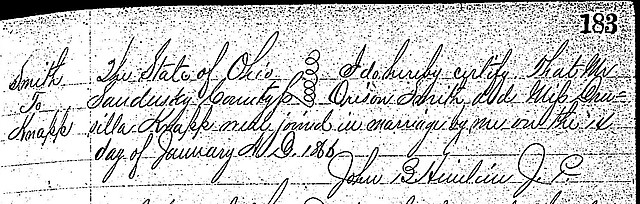 183
Smith
To
Knapp
The State of Ohio } I do hereby certify That Mr
Sandusky County SS } Orison Smith and Miss Dru=
silla Knapp were joined in marriage by me on the 1st
day of January A. D. 1866
John B J. P.